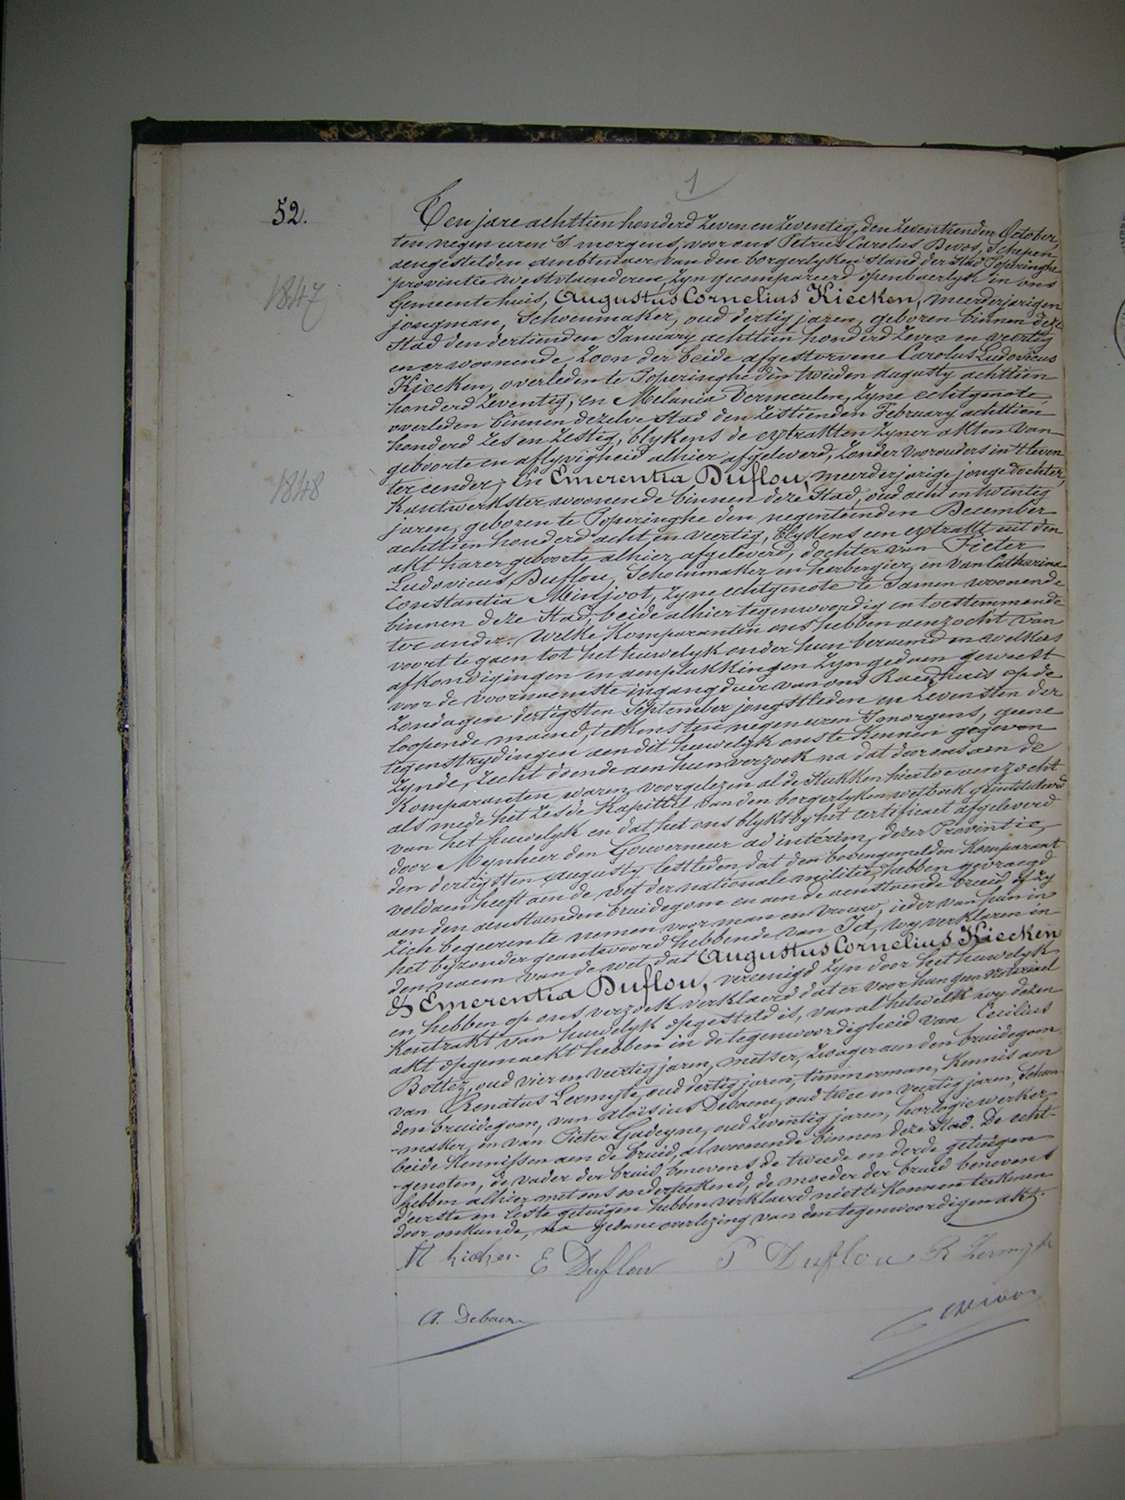 1
52.
Ten jare achttien honderd zeven en zeventig, den zeventienden October,
ten negen uren 's morgens, voor ons Petrus Carolus Devos, Schepen
aengestelden Ambtenaer van den borgerlyken stand der stad Poperinghe
provintie Westvlaenderen, zyn gecompareerd openbaerlyk in ons
1847
Gemeentehuis, Augustus Cornelius Kiecken, meerderjarigen
jongman, Schoenmaker, oud dertig jaren, geboren binnen deze
stad den dertienden January achttien honderd zeven en veertig
en er woonende, zoon der beide afgestorvene Carolus Ludovicus
Kiecken, overleden te Poperinghe den tweeden Augusty achttien
honderd zeventig, en Melania Vermeulen, zyne echtgenote,
overleden binnen dezelve stad den zestienden February achttien
honderd zes en zestig, blykens de extrakten zyner akten van
geboorte en aflyvigheid alhier afgeleverd, zonder voorouders in 't leven
1848
ter eender; En Emerentia Duflou, meerderjarige jongedochter,
Kantwerkster woonende binnen deze stad, oud acht en twintig
jaren, geboren te Poperinghe den negentienden December
achttien honderd acht en veertig, blykens een extrakt uit den
akt harer geboorte alhier afgeleverd, dochter van Pieter
Ludovicus Duflou, Schoenmaker en herbergier, en van Catharina
Constantia Minjoot, zyne echtgenote te samen woonende
binnen deze stad, beide alhier tegenwoordig en toestemmende
ter ander. Welke Komparanten ons hebben aenzocht van
voort te gaen tot het huwelyk onder hun beraemd en welkers
afkondigingen en aenplakkingen zyn gedaen geweest
voor de voornaemste ingangdeur van ons Raedhuis op de
Zondagen dertigsten September jongstleden en zevensten der
loopende maend, telkens ten negen uren 's morgens, geene
tegenstrydingen aen dit huwelyk ons te kennen gegeven
zynde, recht doende aen hun verzoek na dat door ons aen de
Komparanten waren voorgelezen al de Stukken hiertoe aenzocht
als mede het zesde Kapittel van den borgerlyken wetboek geintituleerd
van het huwelyk en dat het ons blykt by het certificaet afgeleverd
door Mynheer den Gouverneur ad interim, dezer Provintie,
den dertigsten Augusty lestleden, dat den bovengemelden Komparant
voldaen heeft aen de wet der nationale militie, hebben gevraegd
aen den aenstaenden bruidegom en aen de aenstaende bruid of zy
zich begeeren te nemen voor man en vrouw, ieder van hun in
het byzonder geantwoord hebbende van Ja, wy verklaren in
den naem van de wet dat Augustus Cornelius Kiecken
& Emerentia Duflou, vereenigd zyn door het huwelyk
en hebben op ons verzoek verklaerd dat er voor hun geen notarieel
Kontrakt van huwelyk opgesteld is, van al hetwelk wy dezen
akt opgemaekt hebben in de tegenwoordigheid van Cecilius
Bottez, oud vier en veertig jaren, metser, zwager aen den bruidegom
van Renatus Lermyte, oud dertig jaren, timmerman, Kennis aen
den bruidegom, van Aloïsius Debaene, oud twee en veertig jaren, Schoen-
-maker, en van Pieter Gadeyne, oud zeventig jaren, horlogiewerker,
beide Kennissen aen de bruid, al woonende binnen deze stad. De echt-
-genoten, de vader der bruid, benevens de tweede en derde getuigen
hebben alhier met ons onderteekend, de moeder der bruid benevens
d'eerste en leste getuigen hebben verklaerd niet te konnen teekenen
door onkunde, na gedane overlezing van den tegenwoordigen akt.
E Duflou P Duflou R Lermyte
A. Debaene